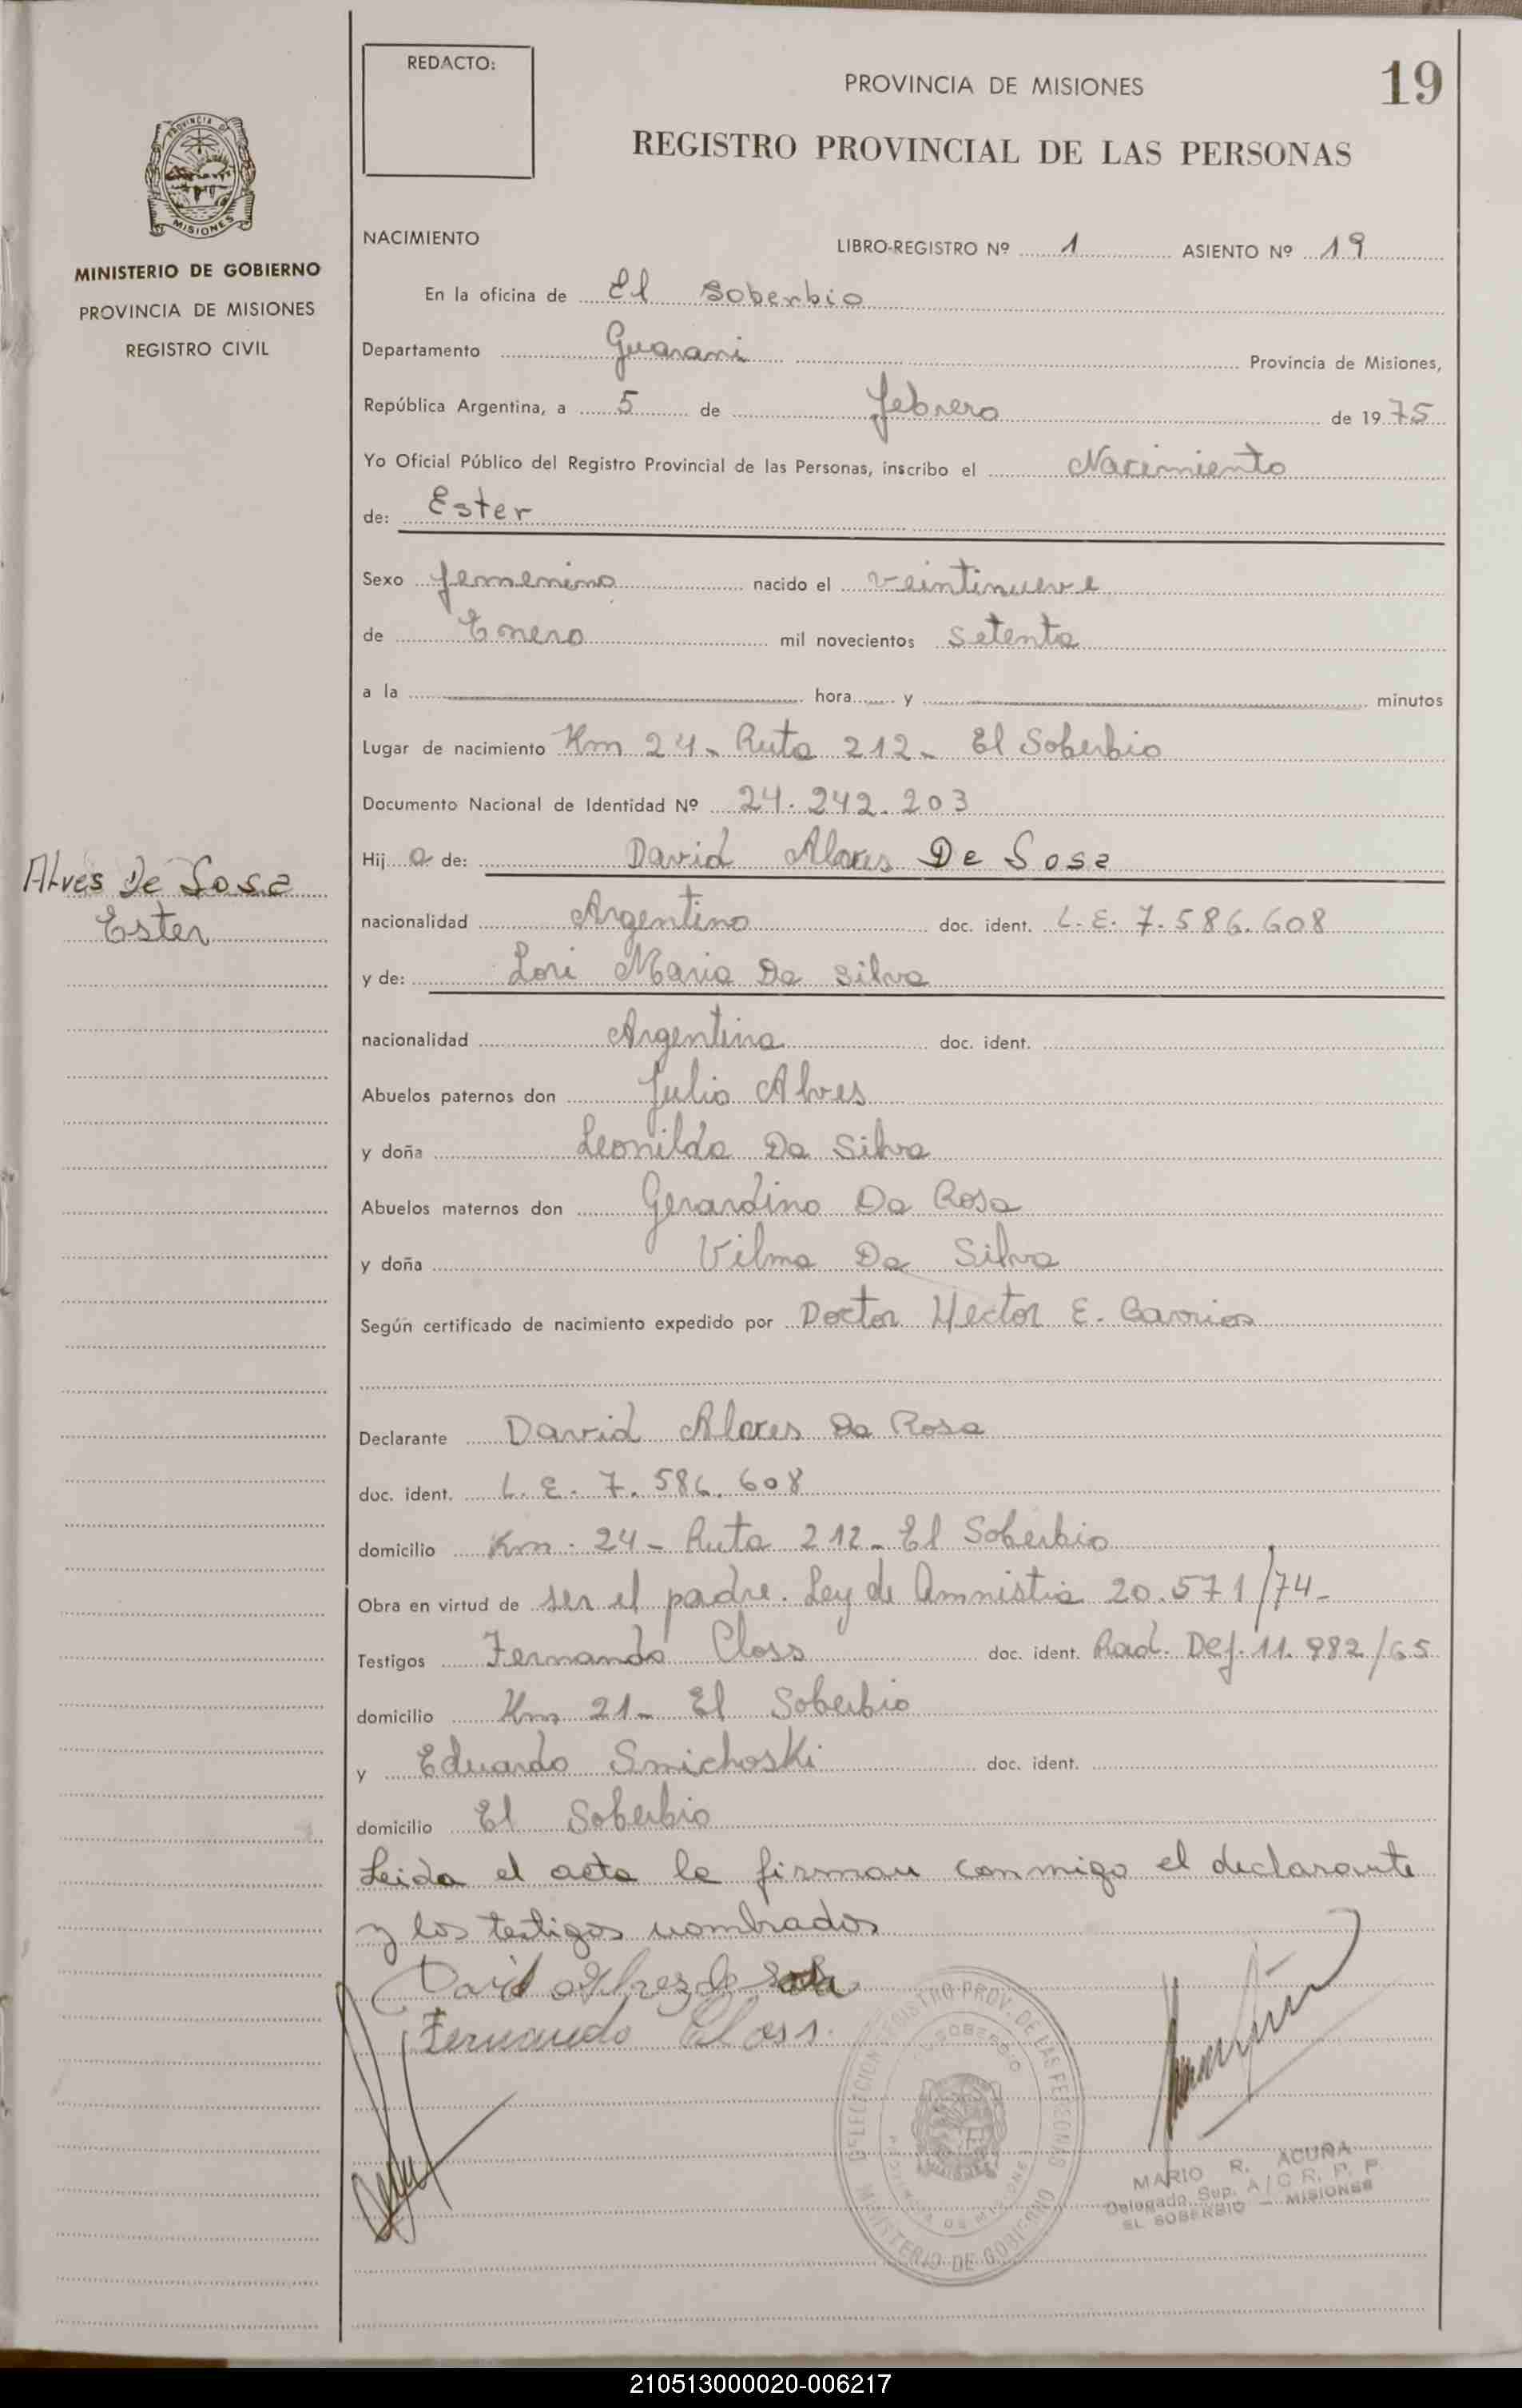 REDACTO:
PROVINCIA DE MISIONES
19
REGISTRO PROVINCIAL DE LAS PERSONAS
MISIONES
MINISTERIO DE GOBIERNO
PROVINCIA DE MISIONES
REGISTRO CIVIL
NACIMIENTO
LIBRO-REGISTRO Nº 1 ASIENTO Nº 19
En la oficina de El Soberbio
Departamento Guarani Provincia de Misiones,
República Argentina, a 5 de febrero de 1975
Yo Oficial Público del Registro Provincial de las Personas, inscribo el Nacimiento
de: Ester
Sexo femenino nacido el veintinueve
de Enero mil novecientos setenta
a la hora y minutos
Lugar de nacimiento Km 24- Ruta 212- El Soberbio
Documento Nacional de Identidad Nº 24.242.203
Hija de: David Alves De Sosa
Alves De Sosa
Ester
nacionalidad Argentino doc. ident. L.E. 7.586.608
y de: Lori Maria Da Silva
nacionalidad Argentina doc. ident.
Abuelos paternos don Julio Alves
y doña Leonilda Da Silva
Abuelos maternos don Gerardino Da Rosa
y doña Vilma Da Silva
Según certificado de nacimiento expedido por Doctor Hector E. Barrios
Declarante David Alves Da Rosa
doc. ident. L.E. 7.586.608
domicilio Km. 24- Ruta 212- El Soberbio
Obra en virtud de ser el padre. Ley de Amnistia 20.571/74-
Testigos Fernando Closs doc. ident. Rad. Def. 11.982/65
domicilio Km 21- El Soberbio
y Eduardo Smichoski doc. ident.
domicilio El Soberbio
Leida el acta la firman conmigo el declarante
y los testigos nombrados
David Alvez de Sosa
Fernando Closs
DELEGACION REGISTRO PROV. DE LAS PERSONAS
MINISTERIO DE GOBIERNO
MARIO R. ACUÑA
Delegado Sup. A/C R. P. P.
EL SOBERBIO - MISIONES
210513000020-006217